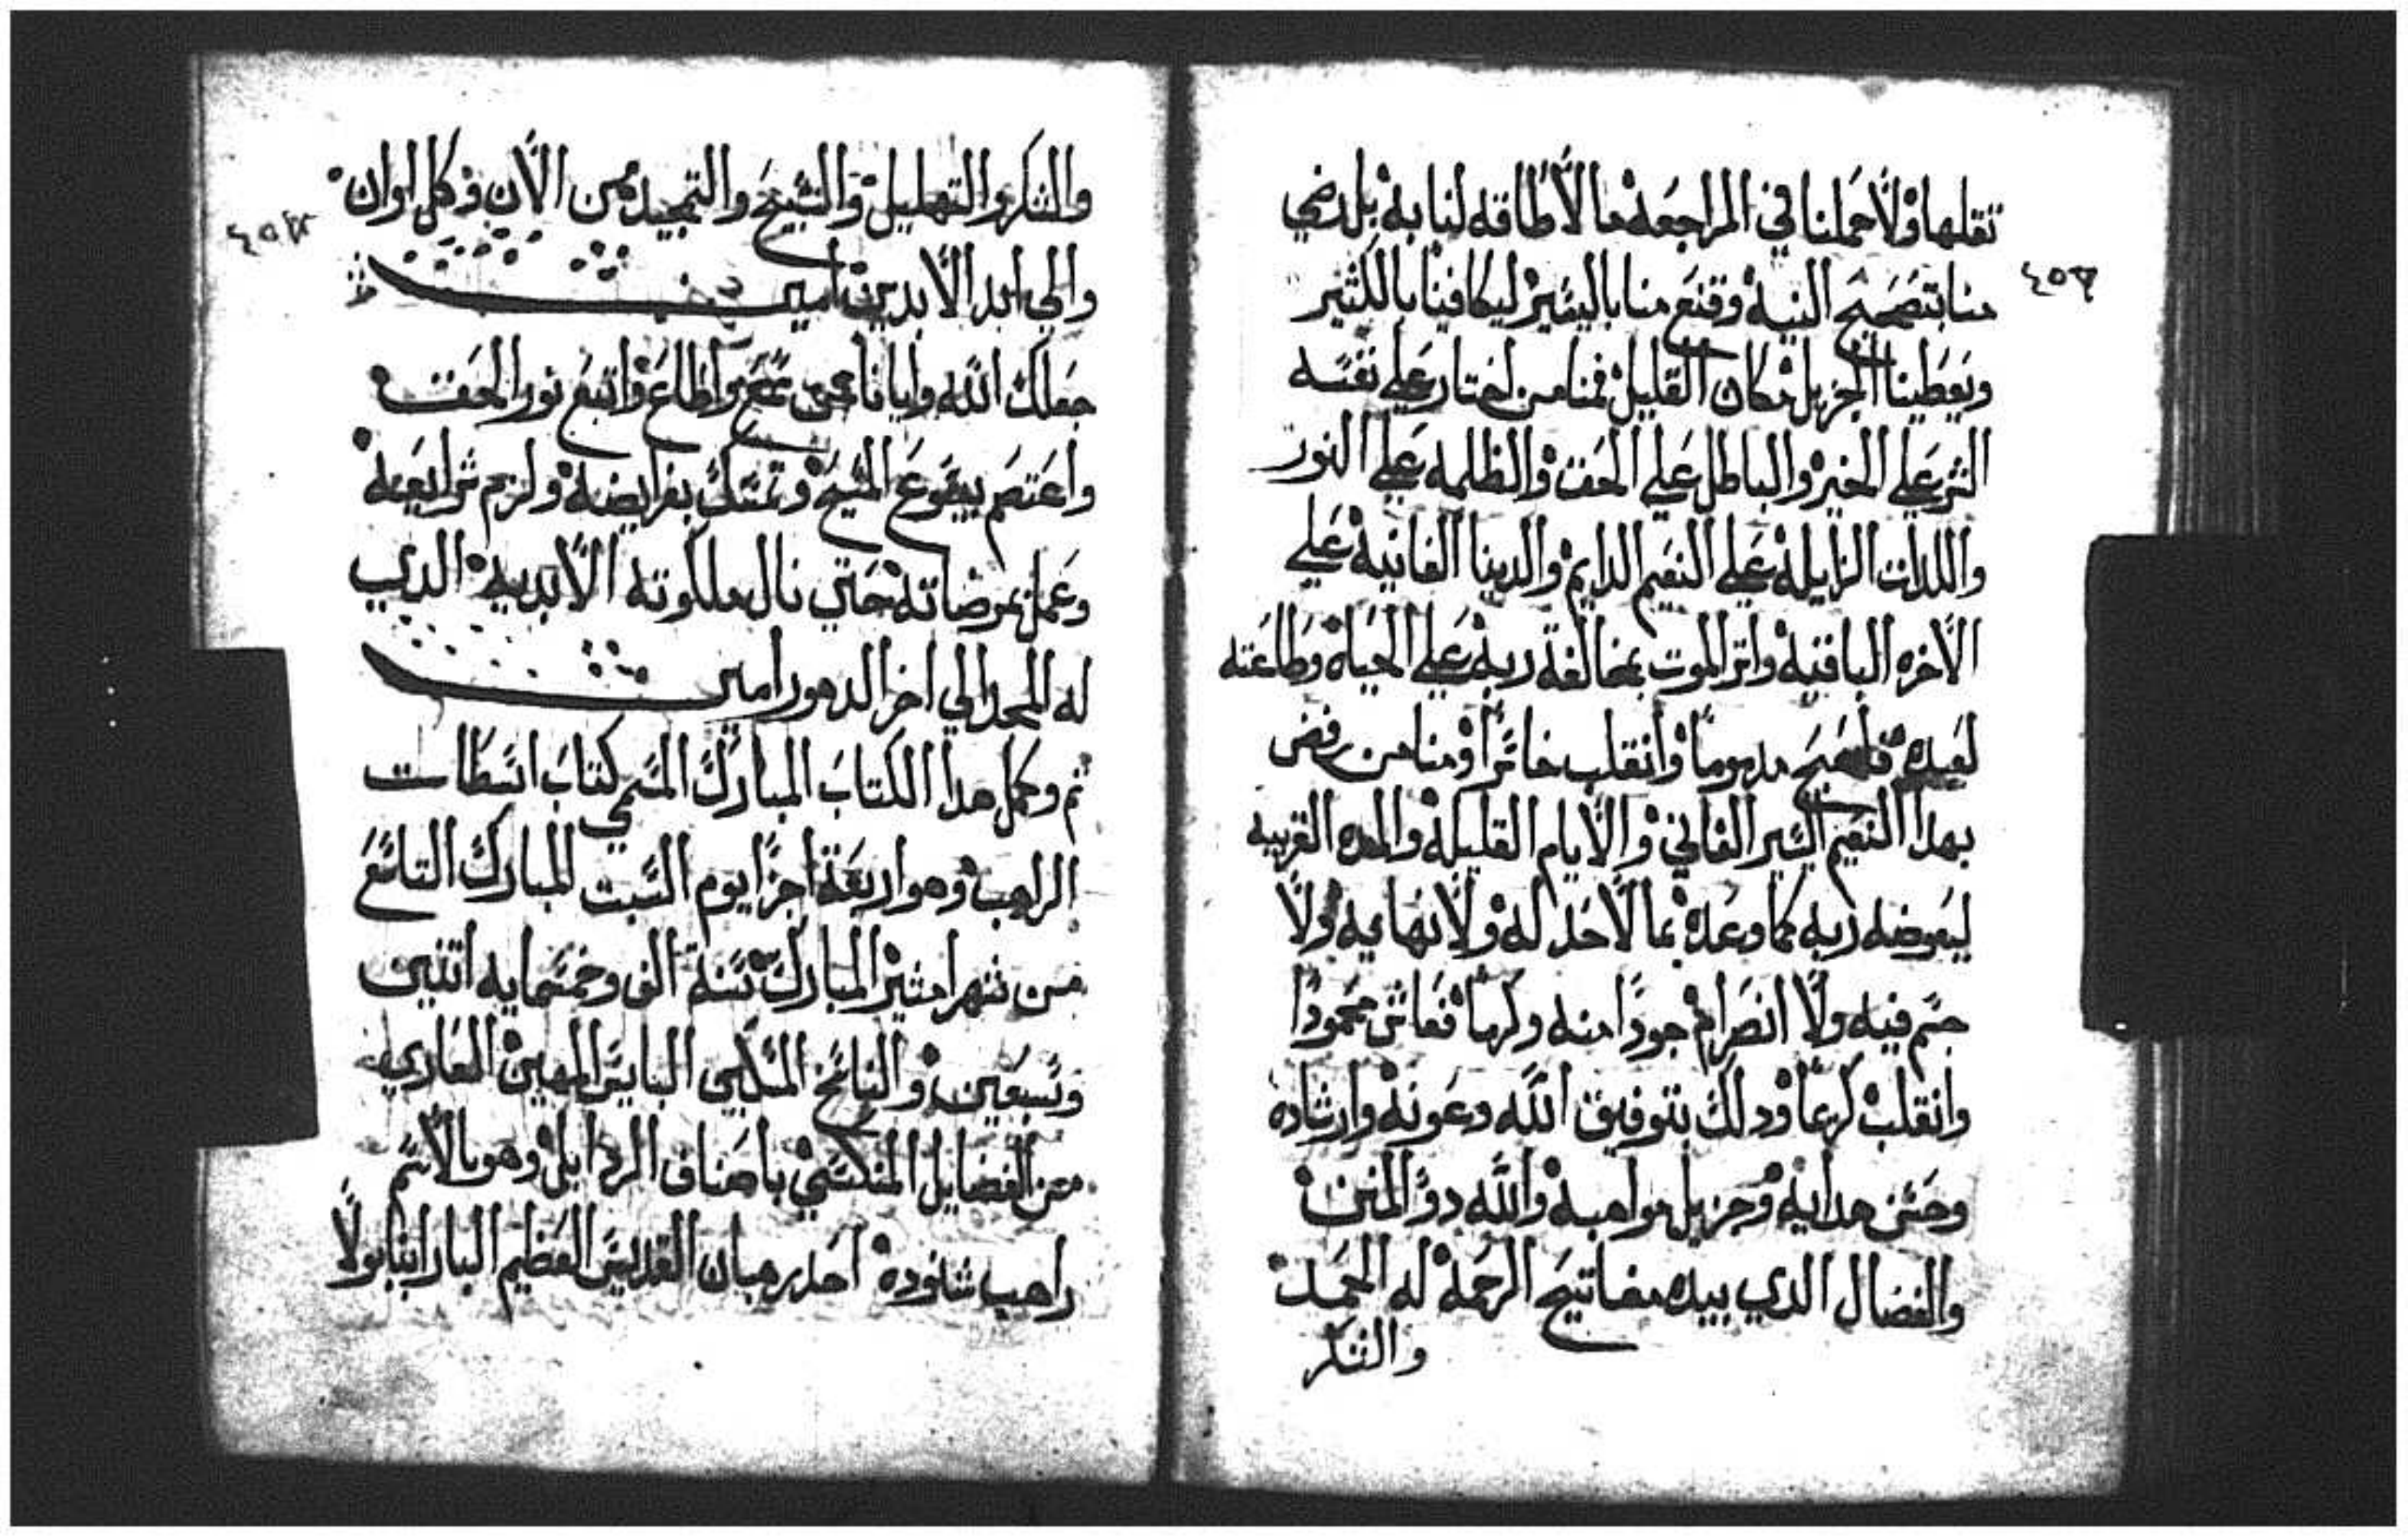 تقلها ولا حملنا في المراجعه ما لا طاقه لنا به بل رضي
٤٥٣
منا بتصحيح النيه وقنع منا باليسير ليكافينا بالكثير
ويعطينا الجزيل مكان القليل فمنا من اختار علي نفسه
الشر علي الخير والباطل علي الحق والظلمه علي النور
واللدات الزايله علي النعيم الدايم والدينا الفانيه علي
الاخره الباقيه واتر الموت بمخالفة ربه علي الحياه وطاعته
لعبده فاصبح مدموما وانقلب خاسرا ومنا من رفض
بهدا النعيم اليسير الفاني والايام القليله والمده القريبه
ليعوضه ربه كما وعده بما لا حد له ولا نهايه ولا
حتم فيه ولا انصرام جودا منه وكرما فعاش محمودا
وانقلب كريما ودلك بتوفيق الله وعونه وارشاده
وحسن هدايه وجزيل مواهبه والله دو المنن
والفضال الدي بيده مفاتيح الرحمه له الحمد
والشكر
والشكر والتهليل والتسبيح والتمجيد من الان وكل اوان
والي ابد الابدين امين
جعلك الله وايانا ممن سمع واطاع واتبع نور الحق
واعتصم بيسوع المسيح وتمسك بفرايضه ولزم شرايعه
وعمل بمرضاته حتي نال ملكوته الابديه الدي
له المجد الي اخر الدهور امين
تم وكمل هدا الكتاب المبارك المسمي كتاب انسطاسـت
الراهب وهو اربعة اجزا يوم السبت المبارك التاسع
من شهر امشير المبارك سنة الف وخمسمايه اتنين
وتسعين والناسخ المسكين البايس المهين العاري
من الفضايل المنكسي باصناف الردايل وهو بالاسم
راهب شنوده احد رهبان القديس العظيم البار انبا بولا